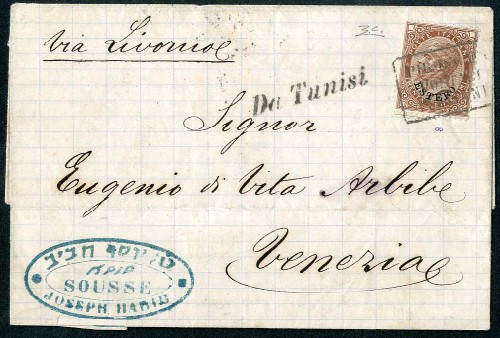 via Livorno
3c.
Da Tunisi
ESTERO
Signor
Eugenio di Vita Arbibe
Venezia
יוסף חביב
סוסה
SOUSSE
JOSEPH HABIB